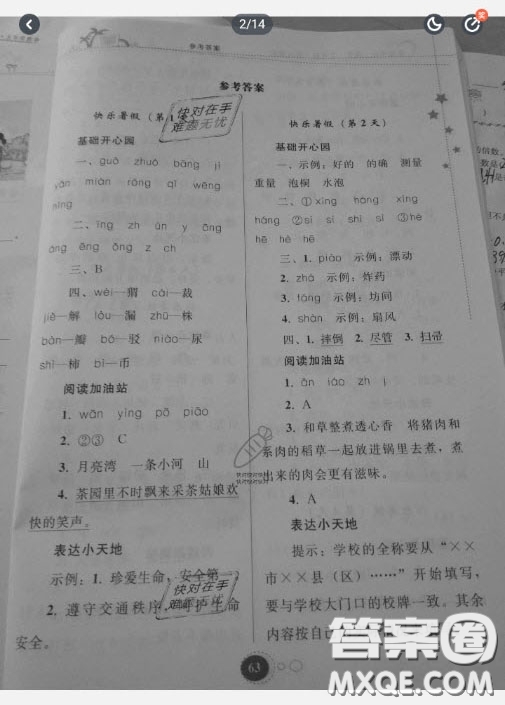 2/14
参考答案
参考答案
快乐暑假（第1天）
基础开心园
一、guō zhuō bāng jǐ
yán miàn róng qī wēng
níng
二、īng zh ùn y āng
áng ēng ǒng z ch
三、B
四、wèi—猬 cái—裁
jiě—解 lòu—漏 zhū—株
bàn—瓣 bó—驳 niào—尿
shì—柿 bì—币
阅读加油站
1. wān yíng pō piāo
2. ②③ C
3. 月亮湾 一条小河 山
4. 茶园里不时飘来采茶姑娘欢
快的笑声。
表达小天地
示例：1. 珍爱生命，安全第一
2. 遵守交通秩序，维护生命
安全。
快乐暑假（第2天）
基础开心园
一、示例：好的 的确 测量
重量 泡桐 水泡
二、①xíng háng xíng
háng ②sì sì shì sì ③hé
hē hé hē
三、1. piāo 示例：漂动
2. zhà 示例：炸药
3. fāng 示例：坊间
4. shàn 示例：扇风
四、1. 摔倒 2. 尽管 3. 扫帚
阅读加油站
1. ān iáo zh j
2. A
3. 和草整煮透心香 将猪肉和
系肉的稻草一起放进锅里去煮，煮
出来的肉会更有滋味。
4. A
表达小天地
提示：学校的全称要从“××
市××县（区）……”开始填写，
要与学校大门口的校牌一致。其余
内容按自己
快对在手
难题无忧
快对在手
难题无忧
63
答案圈
MXQE.COM